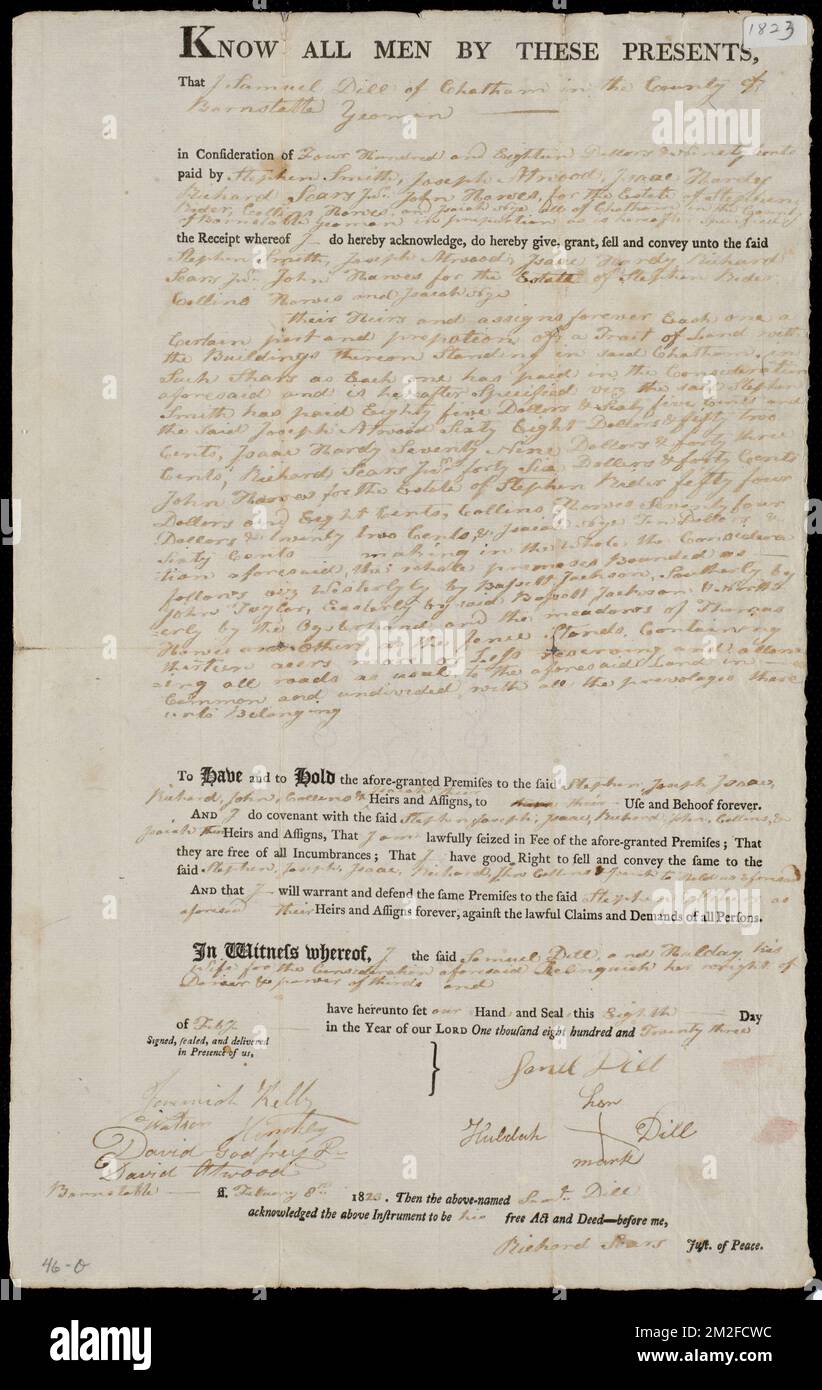 1823
KNOW ALL MEN BY THESE PRESENTS,
That I Samuel Dill of Chatham in the County of
Barnstable Yeoman
in Consideration of Four Hundred and Eightein Dollars & Ninety cents
paid by Stephen Smith, Joseph Atwood, Isaac Hardy
Richard Sears Jur. John Hawes, for the Estate of Stephen
Collins Hawes, and Isaiah Nye all of Chatham in the County
of Barnstable Yeoman in propotion as is hereafter Specified
the Receipt whereof I do hereby acknowledge, do hereby give, grant, sell and convey unto the said
Stephen Smith, Joseph Atwood, Isaac Hardy Richard
Sears Jur. John Hawes for the Estate of Stephen
Collins Hawes and Isaiah Nye
their Heirs and assigns forever Each one a
Certain part and propotion of a Trait of Land with
the Buildings thereon Standing in said Chatham, in
Such Shars as Each one has paid in the Consideration
aforesaid and is hereafter Specified viz the said Stephen
Smith has paid Eighty five Dollars & Sixty five Cents and
the said Joseph Atwood Sixty Eight Dollars & fifty two
Cents, Isaac Hardy Seventy Nine Dollars & forty three
Cents, Richard Sears Jur. forty Six Dollars & forty Cents
John Hawes for the Estate of Stephen fifty four
Dollars and Eight Cents, Collins Hawes Seventy four
Dollars & twenty two Cents, & Isaiah Nye Ten Dollars &
Sixty Cents making in the whole the Considera
tion aforesaid, the whole premises Bounded as
follows viz Westerlyly by Bassett Jackson, Southerly by
John Taylor, Easterly by said Bassett Jackson & North
erly by the and the meadows of Thomas
Hawes and Others as the fence Stands, Containing
thirteen acers more or Less reserving and allow
ing all roads as usual to the aforesaid Land in
Common and undivided with all the prevolages there
unto Belonging
To Have and to Hold the afore-granted Premises to the said Stephen, Joseph Isaac,
Richard, John, Collins & Isaiah their Heirs and Assigns, to their Use and Behoof forever.
AND I do covenant with the said Stephen, Joseph, Isaac, Richard, John, Collins, &
Isaiah their Heirs and Assigns, That I am lawfully seized in Fee of the afore-granted Premises; That
they are free of all Incumbrances; That I have good Right to sell and convey the same to the
said Stephen, Joseph, Isaac, Richard, Jhn Collins & Isaiah to Hold as aforesaid
AND that I will warrant and defend the same Premises to the said Stephen as
aforesaid their Heirs and Assigns forever, against the lawful Claims and Demands of all Persons.
In Witness whereof, I the said Samuel Dill and Hulday his
Wife for the Consideration aforesaid Relinquish her wright of
Dower & power of thirds and
have hereunto set our Hand and Seal this Eighth Day
of Feby in the Year of our LORD One thousand eight hundred and Twenty three
Signed, sealed, and delivered
in Presence of us,
Samll Dill
her
Huldah Dill
mark
Jeremiah Kelly
Watson Hinckley
David Godfrey Jr
David Atwood
Barnstable ss. February 8th 1823. Then the above-named Saml. Dill
acknowledged the above Instrument to be his free Act and Deed—before me,
Richard Sears Just. of Peace.
46-0
alamy
Image ID: 2M2FCWC
www.alamy.com